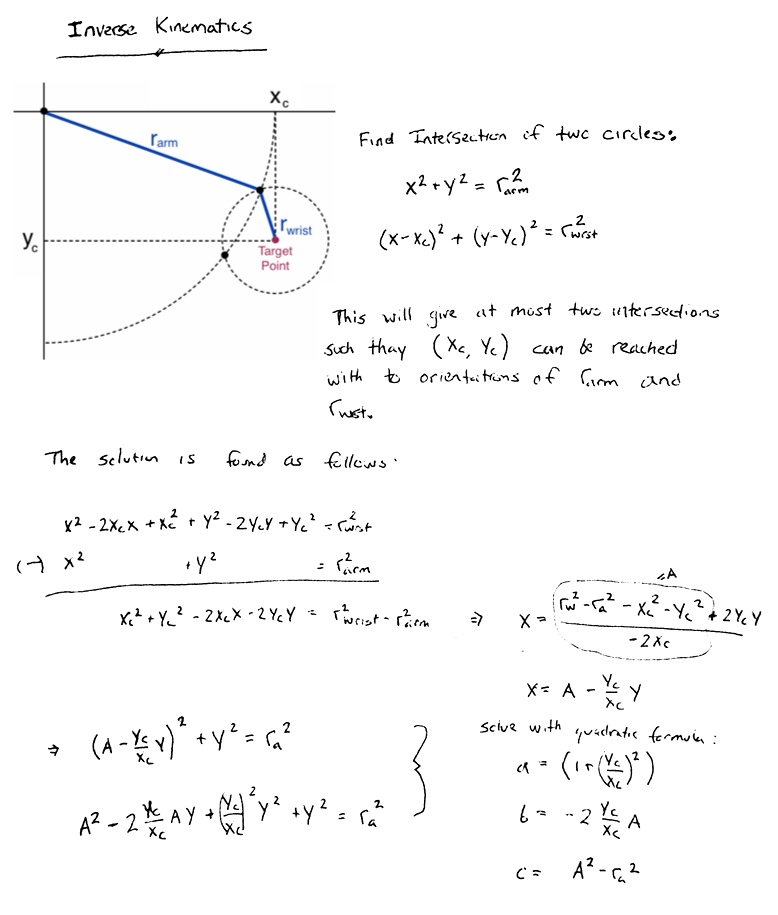 Inverse Kinematics
X_c
r_arm
Y_c
r_wrist
Target
Point
Find Intersection of two circles:
x² + y² = r²_arm
(x-x_c)² + (y-y_c)² = r²_wrst
This will give at most two intersections
such thay (x_c, y_c) can be reached
with to orientations of r_arm and
r_wst.
The solution is found as follows.
x² - 2x_cx + x_c² + y² - 2y_cy + y_c² = r²_wrst
(-) x² + y² = r²_arm
x_c² + y_c² - 2x_cx - 2y_cy = r²_wrist - r²_arm
⇒ x = (r_w² - r_a² - x_c² - y_c² + 2y_cy) / -2x_c
= A
x = A - y_c/x_c y
⇒ (A - y_c/x_c y)² + y² = r_a²
A² - 2 y_c/x_c Ay + (y_c/x_c)² y² + y² = r_a²
solve with quadratic formula:
a = (1 + (y_c/x_c)²)
b = -2 y_c/x_c A
c = A² - r_a²